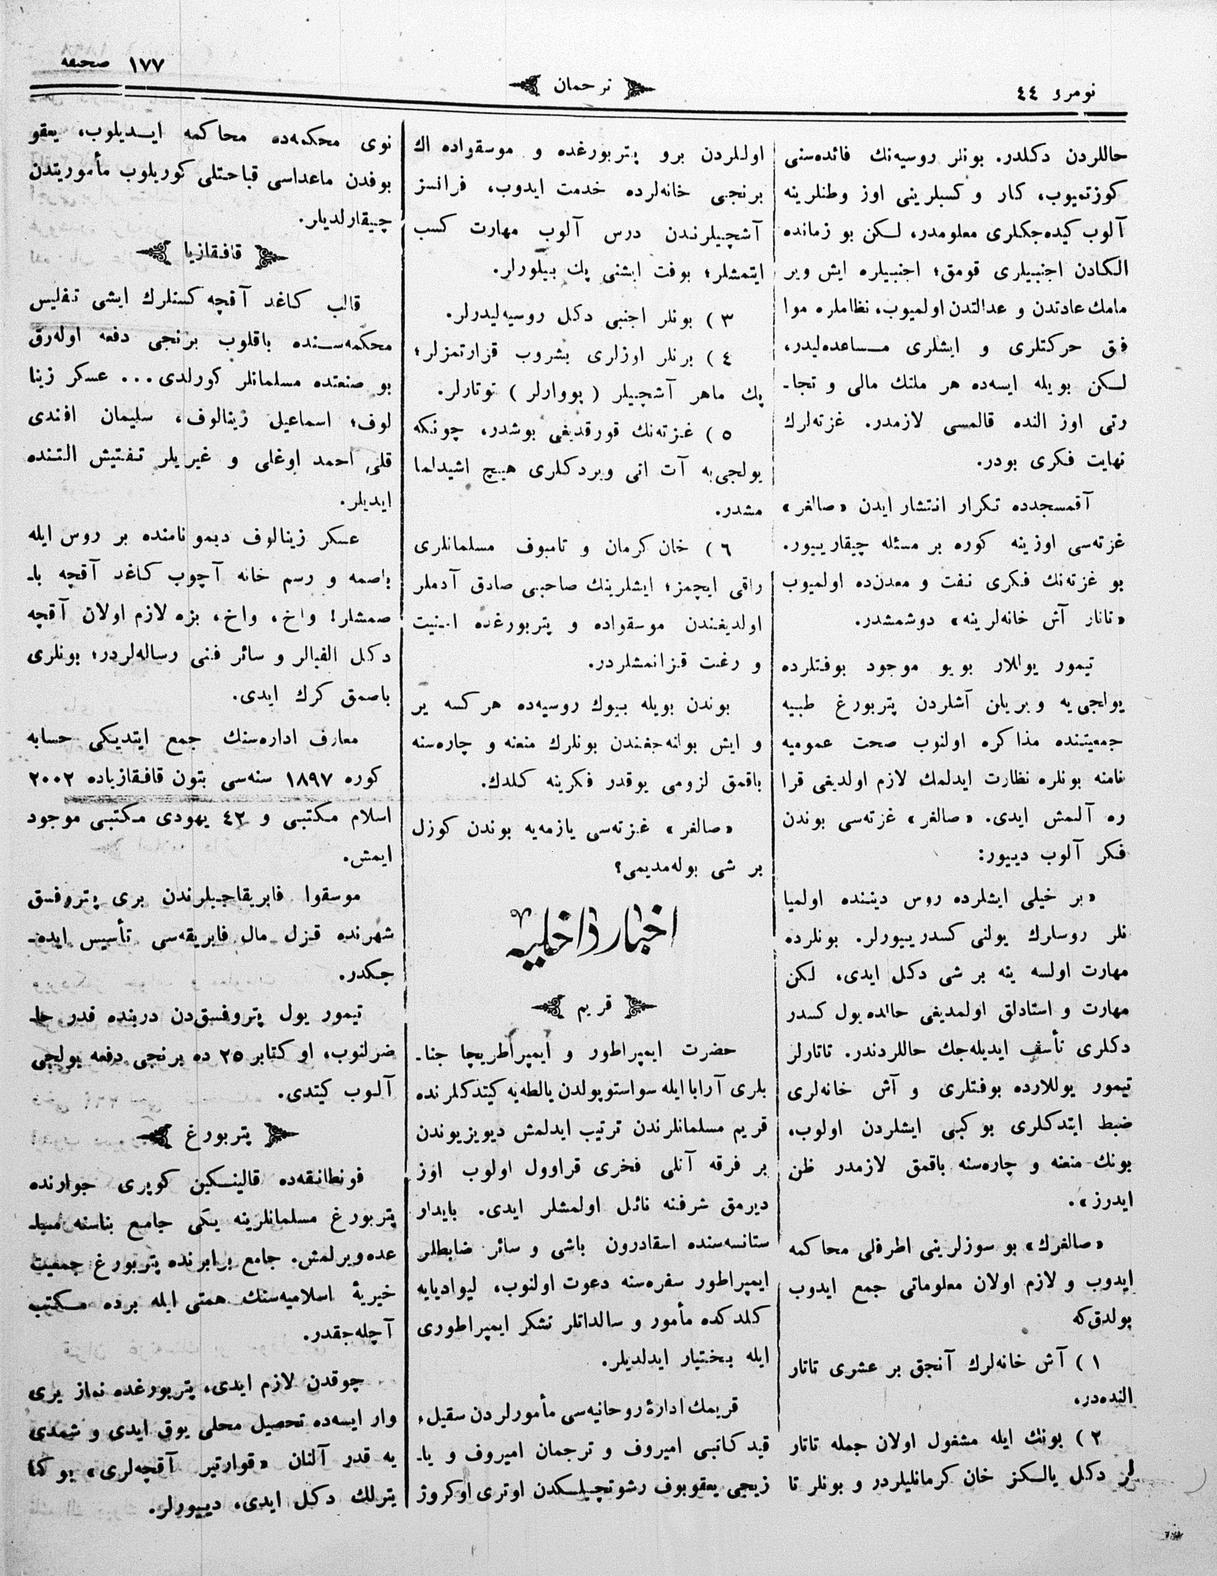 نومرو ٤٤
ترجمان
١٧٧ صحیفه
حاللردن دكلدر. بونلر روسیه‌نك فائده‌سنی
كوزتمیوب، كار و كسبلرینی اوز وطنلرینه
آلوب كیده‌جكلری معلومدر، لكن بو زمانده
الكادن اجنبیلری قومق؛ اجنبیلره ایش ویر
مامك عادتدن و عدالتدن اولمیوب، نظاملره موا
فق حركتلری و ایشلری مساعده‌لیدر،
لكن بویله ایسه‌ده هر ملتك مالی و تجا-
رتی اوز النده قالمسی لازمدر. غزته‌لرك
نهایت فكری بودر.
آقمسجدده تكرار انتشار ایدن «صالغر»
غزته‌سی اوزینه كوره بر مسئله چیقارییور.
بو غزته‌نك فكری نفت و معدن‌ده اولمیوب
«تاتار آش خانه‌لرینه» دوشمشدر.
تیمور یوللار بویو موجود بوفتلرده
یولجی‌یه ویریلن آشلردن پتربورغ طبیه
جمعیتنده مذاكره اولنوب صحت عمومیه
نامنه بونلره نظارت ایدلمك لازم اولدیغی قرا
ره آلنمش ایدی. «صالغر» غزته‌سی بوندن
فكر آلوب دییور:
«بر خیلی ایشلرده روس دیننده اولمیا
نلر روسلرك یولنی كسدرییورلر. بونلرده
مهارت اولسه ینه بر شی دكل ایدی، لكن
مهارت و استادلق اولمدیغی حالده یول كسدر
دكلری تأسف ایدیله‌جك حاللردندر. تاتارلر
تیمور یوللارده بوفتلری و آش خانه‌لری
ضبط ایتدكلری بو كبی ایشلردن اولوب،
بونك منعنه و چاره‌سنه باقمق لازمدر ظن
ایدرز».
«صالغرك» بو سوزلرینی اطرفلی محاكمه
ایدوب و لازم اولان معلوماتی جمع ایدوب
بولدق‌كه
١) آش خانه‌لرك آنجق بر عشری تاتار
النده‌در،
٢) بونك ایله مشغول اولان جمله تاتار
لر دكل یالكز خان كرمانلیلردر و بونلر تا
اوللردن برو پتربورغده و موسقواده اك
برنجی خانه‌لرده خدمت ایدوب، فرانسز
آشچیلرندن درس آلوب مهارت كسب
ایتمشلر؛ بوفت ایشنی پك بیلورلر.
٣) بونلر اجنبی دكل روسیه‌لیدرلر.
٤) برنلر اوزلری بشروب قزارتمزلر؛
پك ماهر آشچیلر (پووارلر) توتارلر.
٥) غزته‌نك قورقدیغی بوشدر، چونكه
یولجی‌یه آت اتی ویردكلری هیچ اشیدلما
مشدر.
٦) خان كرمان و تامبوف مسلمانلری
راقی ایچمز؛ ایشلرینك صاحبی صادق آدملر
اولدیغندن موسقواده و پتربورغده امنیت
و رغبت قزانمشلردر.
بوندن بویله بیوك روسیه‌ده هر كسه یر
و ایش بولنه‌جغندن بونلرك منعنه و چاره‌سنه
باقمق لزومی یوقدر فكرینه كلدك.
«صالغر» غزته‌سی یازمه‌یه بوندن كوزل
بر شی بوله‌مدیمی؟
اخبار داخلیه
قریم
حضرت ایمپراطور و ایمپراطریچا جنا-
بلری آرابا ایله سواستوپولدن یالطه‌یه كیتدكلرنده
قریم مسلمانلرندن ترتیب ایدلمش دیویزیوندن
بر فرقه آتلی فخری قراوول اولوب اوز
دیرمق شرفنه نائل اولمشلر ایدی. بایدار
ستانسه‌سنده اسقادرون باشی و سائر ضابطلر
ایمپراطور سفره‌سنه دعوت اولنوب، لیوادیایه
كلدكده مأمور و سالداتلر تشكر ایمپراطوری
ایله بختیار ایدلدیلر.
قریمك ادارهٔ روحانیه‌سی مأمورلردن سقیل،
قید كاتبی امیروف و ترجمان امیروف و یا-
زیجی یعقوبوف رشوتچیلكدن اوتری اوكروژ
نوی محكمه‌ده محاكمه ایدیلوب، یعقو
بوفدن ماعداسی قباحتلی كوریلوب مأموریتدن
چیقارلدیلر.
قافقازیا
قالب كاغد آقچه كسنلرك ایشی تفلیس
محكمه‌سنده باقلوب برنجی دفعه اوله‌رق
بو صنعتده مسلمانلر كورلدی... عسكر زینا
لوف؛ اسماعیل زینالوف، سلیمان افندی
قلی احمد اوغلی و غیریلر تفتیش التنده
ایدیلر.
عسكر زینالوف دیمو نامنده بر روس ایله
باصمه و رسم خانه آچوب كاغد آقچه با-
صمشلر! واخ، واخ، بزه لازم اولان آقچه
دكل الفبالر و سائر فنی رساله‌لردر؛ بونلری
باصمق كرك ایدی.
معارف اداره‌سنك جمع ایتدیكی حسابه
كوره ١٨٩٧ سنه‌سی بتون قافقازیاده ٢٠٠٢
اسلام مكتبی و ٤٢ یهودی مكتبی موجود
ایمش.
موسقوا فابریقاجیلرندن بری پتروفسق
شهرنده قزل مال فابریقه‌سی تأسیس ایده-
جكدر.
تیمور یول پتروفسق‌دن دربنده قدر حا-
ضرلنوب، اوكتابر ٢٥ ده برنجی دفعه یولجی
آلوب كیتدی.
پتربورغ
فونطانقه‌ده قالینكین كوپری جوارنده
پتربورغ مسلمانلرینه یكی جامع بناسنه مسا-
عده ویرلمش. جامع برابرنده پتربورغ جمعیت
خیریهٔ اسلامیه‌سنك همتی ایله برده مكتب
آچله‌جقدر.
چوقدن لازم ایدی، پتربورغده نماز یری
وار ایسه‌ده تحصیل محلی یوق ایدی و شمدی
یه قدر آلنان «قوارتیر آقچه‌لری» بوكا
یترلك دكل ایدی، دییورلر.